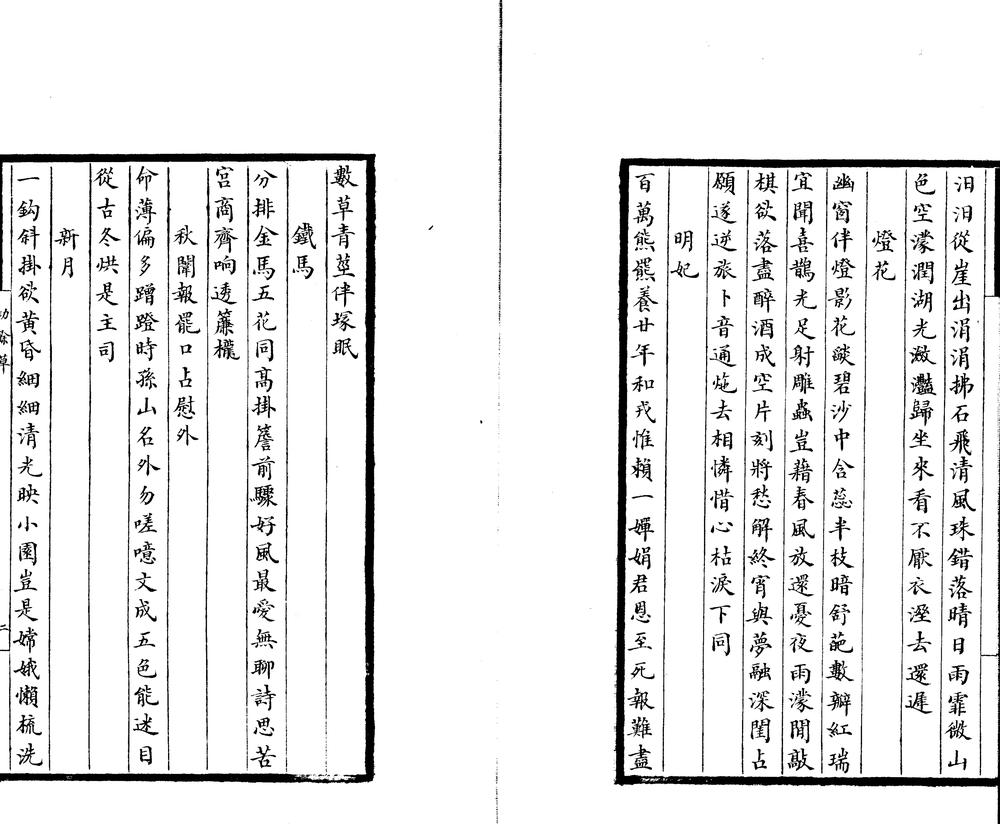 汨汨從崖出涓涓拂石飛清風珠錯落晴日雨霏微山
色空濛潤湖光瀲灩歸坐來看不厭衣溼去還遲
燈花
幽窗伴燈影花燄碧沙中含蕊半枝暗舒葩數瓣紅瑞
宜聞喜鵲光足射雕蟲豈藉春風放還憂夜雨濛閒敲
棋欲落盡醉酒成空片刻將愁解終宵與夢融深閨占
願遂逆旅卜音通炧去相憐惜心枯淚下同
明妃
百萬熊羆養廿年和戎惟賴一嬋娟君恩至死報難盡
數草青塋伴塚眠
鐵馬
分排金馬五花同高掛簷前驟好風最愛無聊詩思苦
宮商齊响透簾櫳
秋闈報罷口占慰外
命薄偏多蹭蹬時孫山名外勿嗟噫文成五色能迷目
從古冬烘是主司
新月
一鈎斜掛欲黃昏細細清光映小園豈是嫦娥懶梳洗
餘草
二